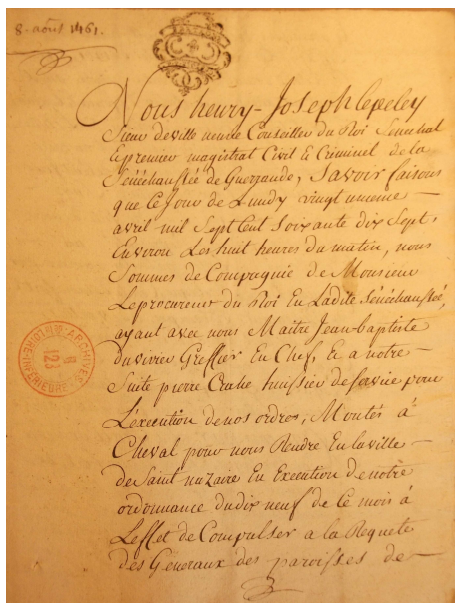 8. aoust 1461.
Nous henry-Joseph lepeley
Sieur deville neuve Conseiller du Roi Senechal
Et premier magistrat Civil & Criminel de la
Sénéchaussée de Guerrande, Savoir faisons
que Ce Jour de Lundy vingt unieme
avril mil Sept Cent Soixante dix Sept,
Environ Les huit heures du matin, nous
Sommes de Compagnie de Monsieur
Le procureur du Roi En Ladite Sénéchaussée,
ayant avec nous Maitre Jean-baptiste
Duvivier Greffier En Chef, & a notre
Suite pierre huissier de Service pour
L'execution de nos ordres, Montés à
Cheval pour nous Rendre En la ville
de Saint nazaire En Execution de notre
ordonnance du dix neuf de Ce mois à
L'effet de Compulser a la Requete
des Généraux des paroisses de
ARCHIVES
LOIRE-INFERIEURE